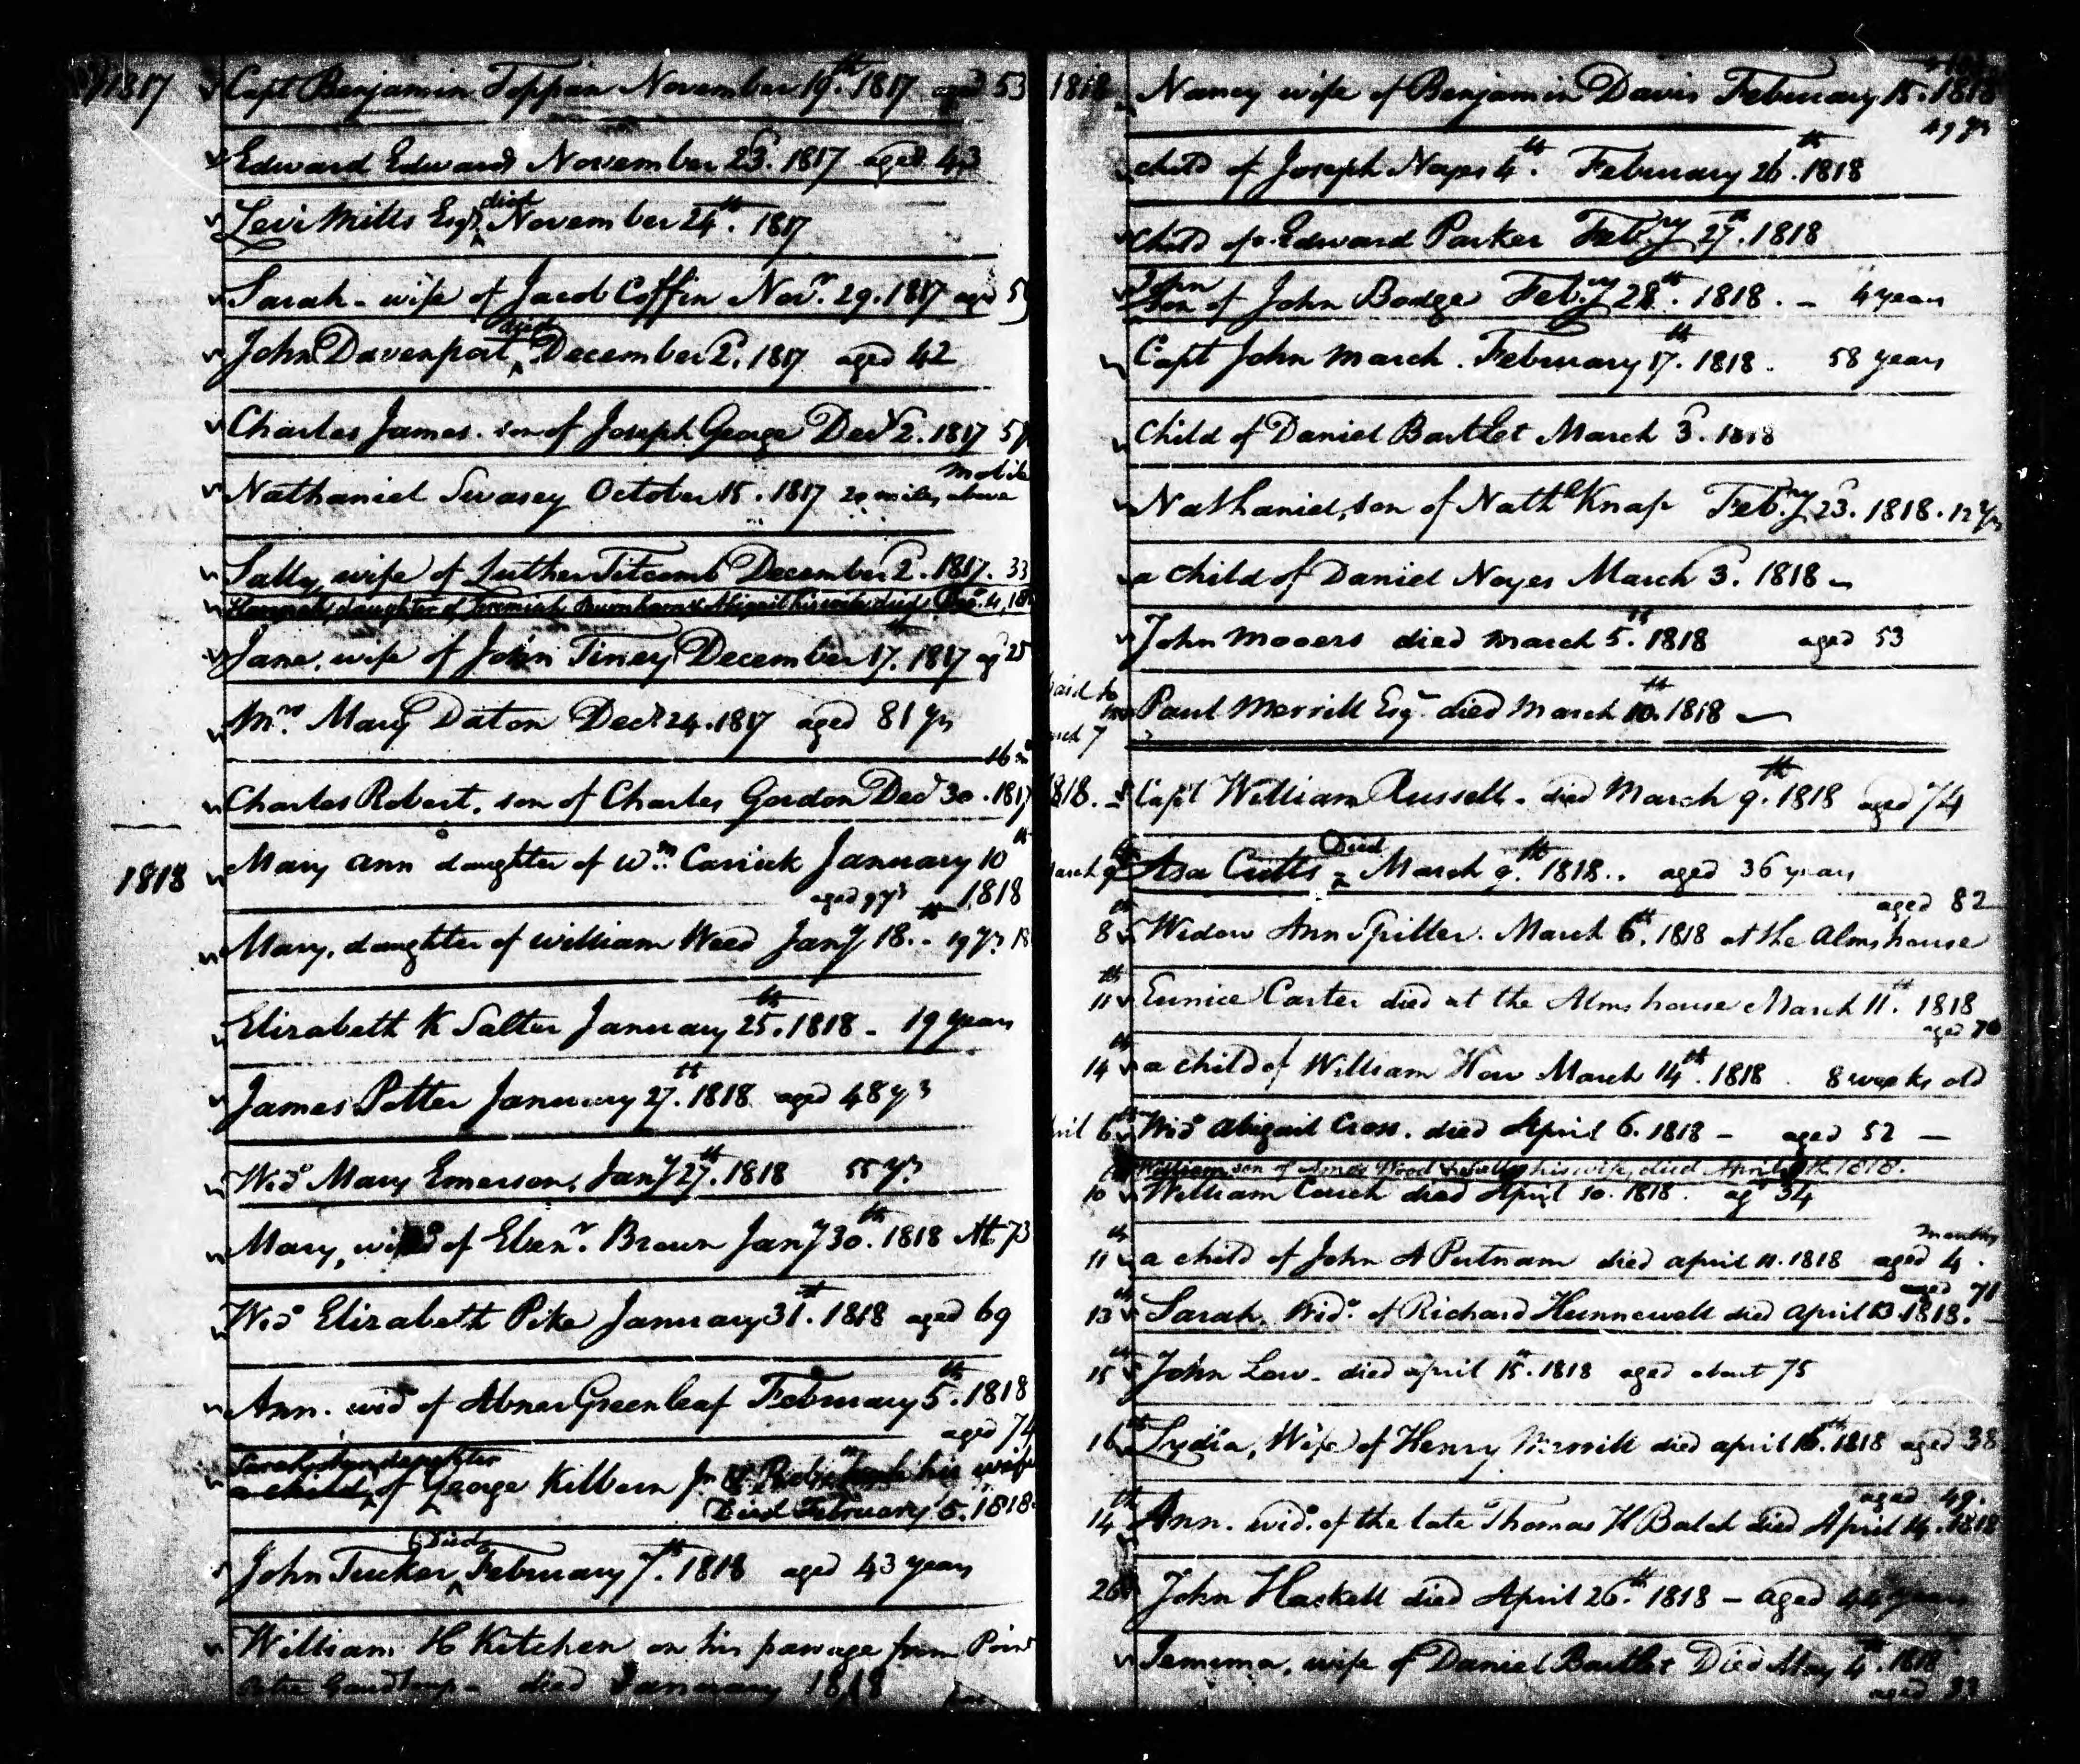 1817 Capt Benjamin Toppan November 19th. 1817 aged 53
Edward Edwards November 23d. 1817 aged 43
died
Levi Mills Esqr. ^ November 24th. 1817
Sarah - wife of Jacob Coffin Novr. 29. 1817 age
died
John Davenport ^ December 2d. 1817 aged 42
Charles James. son of Joseph George Decr 2. 1817
Mobile
Nathaniel Swasey October 15. 1817 20 miles above
Sally, wife of Luther Titcomb December 2d. 1817. 33
Hannah, daughter of Jeremiah Burnham & Abigail his wife, died Decr. 4, 18
Jane, wife of John Tinney December 17th. 1817 ag 25
Mrs. Mary Daton Decr 24. 1817 aged 81 yrs
16 m
Charles Robert. son of Charles Gordon Decr 30. 1817
1818 Mary Ann daughter of Wm. Carrick January 10th
aged 9 yrs 1818
Mary, daughter of William Weed Jany 18th. - 19 yrs 18
Elizabeth K Salter January 25th. 1818 - 19 years
James Potter January 27th. 1818 aged 48 yrs
Wido Mary Emerson, Jany 27th. 1818 55 yrs
Mary, of Ebenr. Brown Jany 30th. 1818 At 73
Wido Elizabeth Pike January 31st. 1818 aged 69
Ann. wido of Abner Greenleaf February 5th. 1818
aged 74
Sarah Ann daughter
a child ^ of George Kilborn Jn & his wife
Died February 5. 1818
Died
John Tucker ^ February 7th. 1818 aged 43 years
William H Kitchen on his passage from Point
Petre died January 1818
1818 Nancy wife of Benjamin Davis February 15. 1818
49 yrs
child of Joseph Noyes 4th. February 26th. 1818
child of Edward Parker Feb.ry 27th. 1818
John
son of John Bodge Feb.ry 28th. 1818. - 4 years
Capt John March. February 17th. 1818. 58 years
child of Daniel Bartlet March 3d. 1818
Nathaniel, son of Nathl Knap Feb.ry 23d. 1818. 12 yrs
a child of Daniel Noyes March 3d. 1818 -
John Mooers died March 5th. 1818 aged 53
Paul Merrill Esqr died March 10th. 1818
818. Capt William Russell. died March 9th. 1818 aged 74
Died
arch 9th Asa Cutts ^ March 9th. 1818.. aged 36 years
aged 82
8th Widow Ann Spiller. March 6th. 1818 at the Almshouse
11th Eunice Carter died at the Almshouse March 11th. 1818
aged 70
14th a child of William How March 14th. 1818 8 weeks old
ril 6th Wido Abigail Cross. died April 6. 1818 - aged 52 -
William, son of Amos Wood & his wife, died April 1818.
10 William Couch died April 10. 1818. agd 34
months
11th a child of John A Putnam died april 11. 1818 aged 4.
aged 71
13th Sarah, Wido. of Richard Hunnewell died April 13. 1818.
15th John Low. died april 15th. 1818 aged about 75
16th Lydia, Wife of Henry Merrill died april 16th. 1818 aged 38
aged 49.
14th Ann. wido. of the late Thomas H Balch died April 14. 1818
26 John Haskell died April 26th. 1818 - aged 44 years
Jemima, wife of Daniel Bartlet Died May 4th. 1818
aged 33